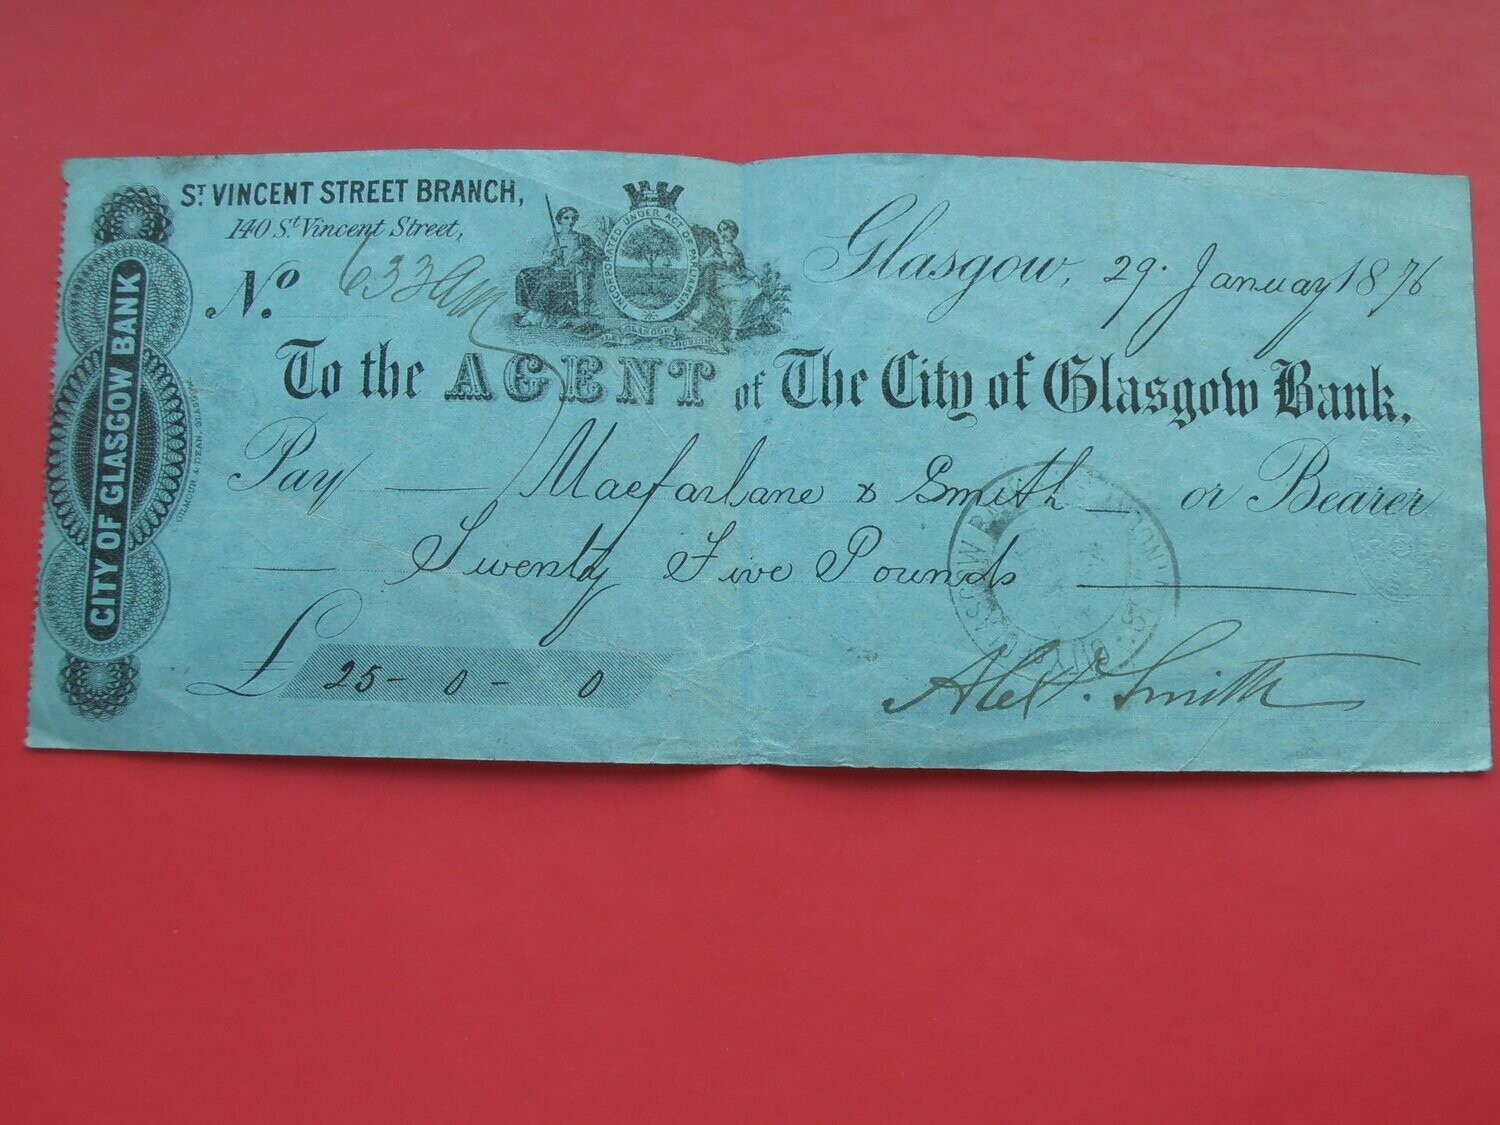 ST VINCENT STREET BRANCH,
140 St Vincent Street,
No. 633
INCORPORATED UNDER ACT OF PARLIAMENT
GLASGOW
Glasgow, 29. January 1876
To the AGENT of The City of Glasgow Bank.
Pay — Macfarlane & Smith — or Bearer
— Twenty Five Pounds —
£ 25 - 0 - 0
Alexr. Smith
CITY OF GLASGOW BANK
GILMOUR & DEAN, GLASGOW
CITY OF GLASGOW BANK